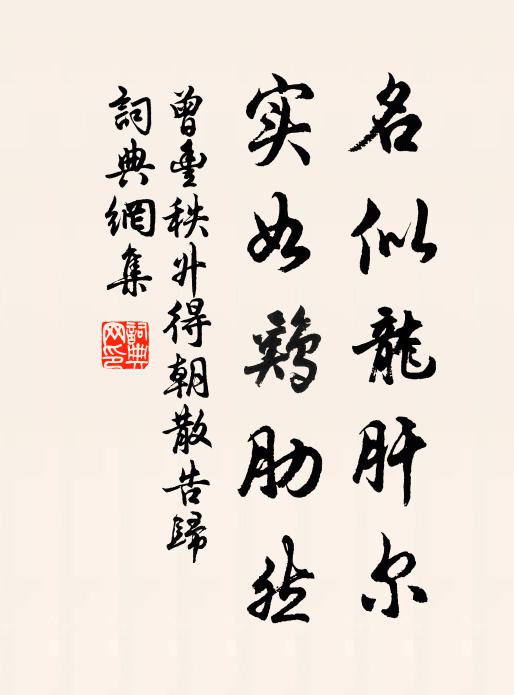 名似龍肝尔
实如鷄肋然
曾豊秩外得朝散告歸
詞典網集
詞典网印